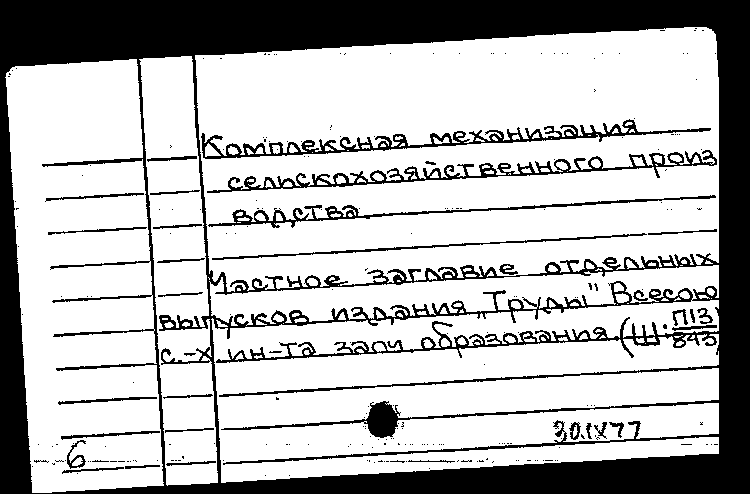 Комплексная механизация
сельскохозяйственного произ
водства.
Частное заглавие отдельных
выпусков издания „Труды" Всесою
с.-х. ин-та заоч. образования. (Ш: П13/843)
30.IX 77
6